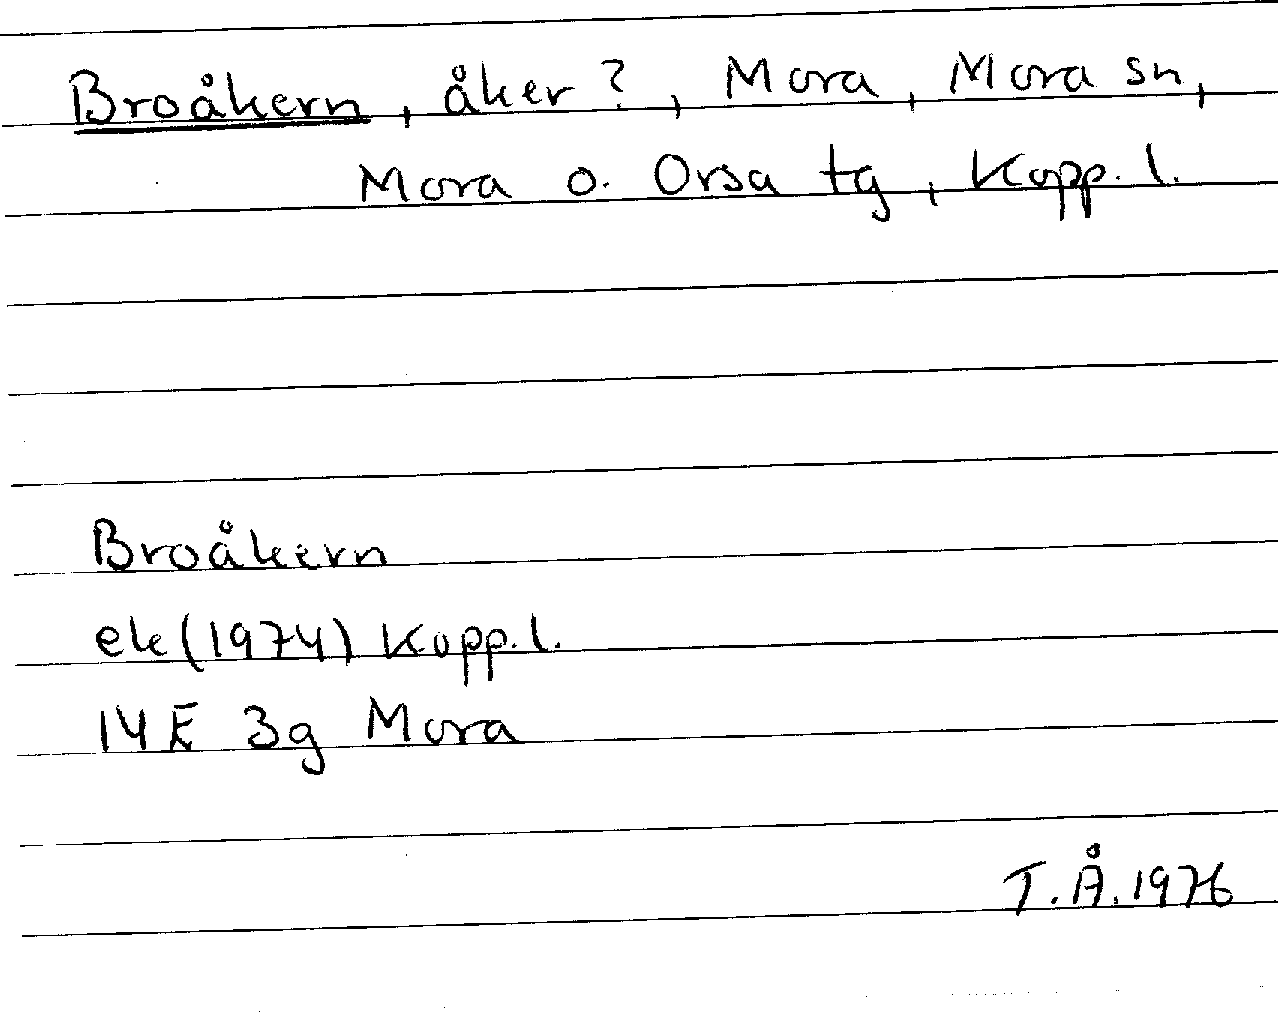 Broåkern, åker?, Mora, Mora sn,
Mora o. Orsa tg, Kopp. l.
Broåkern
ek (1974) Kopp. l.
14E 3g Mora
T.Å. 1976